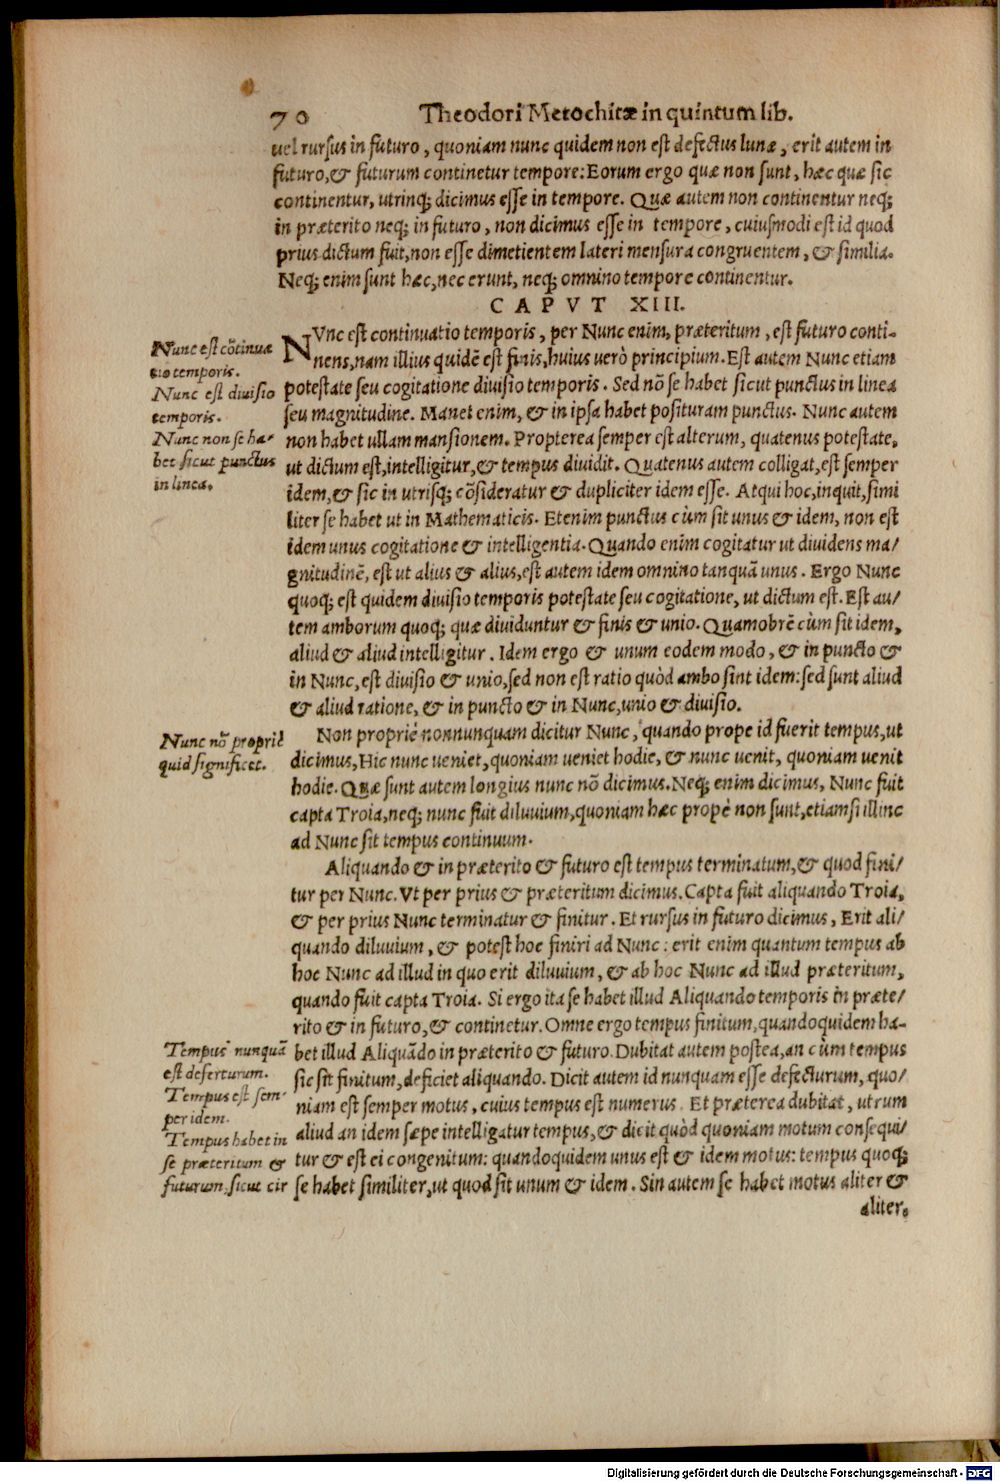 70 Theodori Metochitæ in quintum lib.
uel rursus in futuro, quoniam nunc quidem non est defectus lunæ, erit autem in
futuro, & futurum continetur tempore: Eorum ergo quæ non sunt, hæc quæ sic
continentur, utrinq; dicimus esse in tempore. Quæ autem non continentur neq;
in præterito neq; in futuro, non dicimus esse in tempore, cuiusmodi est id quod
prius dictum fuit, non esse dimetientem lateri mensura congruentem, & similia.
Neq; enim sunt hæc, nec erunt, neq; omnino tempore continentur.
CAPVT XIII.
Nunc est cõtinua
tio temporis.
Nunc est diuisio
temporis.
Nunc non se ha-
bet sicut punctus
in linea.
NVnc est continuatio temporis, per Nunc enim, præteritum, est futuro conti-
nens, nam illius quidẽ est finis, huius uerò principium. Est autem Nunc etiam
potestate seu cogitatione diuisio temporis. Sed nõ se habet sicut punctus in linea
seu magnitudine. Manet enim, & in ipsa habet posituram punctus. Nunc autem
non habet ullam mansionem. Propterea semper est alterum, quatenus potestate,
ut dictum est, intelligitur, & tempus diuidit. Quatenus autem colligat, est semper
idem, & sic in utrisq; cõsideratur & dupliciter idem esse. Atqui hoc, inquit, simi
liter se habet ut in Mathematicis. Etenim punctus cùm sit unus & idem, non est
idem unus cogitatione & intelligentia. Quando enim cogitatur ut diuidens ma/
gnitudinẽ, est ut alius & alius, est autem idem omnino tanquã unus. Ergo Nunc
quoq; est quidem diuisio temporis potestate seu cogitatione, ut dictum est. Est au/
tem amborum quoq; quæ diuiduntur & finis & unio. Quamobrẽ cùm sit idem,
aliud & aliud intelligitur. Idem ergo & unum eodem modo, & in puncto &
in Nunc, est diuisio & unio, sed non est ratio quòd ambo sint idem: sed sunt aliud
& aliud ratione, & in puncto & in Nunc, unio & diuisio.
Nunc nõ propriè
quid significet.
Non propriè nonnunquam dicitur Nunc, quando prope id fuerit tempus, ut
dicimus, Hic nunc ueniet, quoniam ueniet hodie, & nunc uenit, quoniam uenit
hodie. Quæ sunt autem longius nunc nõ dicimus. Neq; enim dicimus, Nunc fuit
capta Troia, neq; nunc fuit diluuium, quoniam hæc propè non sunt, etiamsi illinc
ad Nunc sit tempus continuum.
Aliquando & in præterito & futuro est tempus terminatum, & quod fini/
tur per Nunc. Vt per prius & præteritum dicimus. Capta fuit aliquando Troia,
& per prius Nunc terminatur & finitur. Et rursus in futuro dicimus, Erit ali/
quando diluuium, & potest hoc finiri ad Nunc: erit enim quantum tempus ab
hoc Nunc ad illud in quo erit diluuium, & ab hoc Nunc ad illud præteritum,
quando fuit capta Troia. Si ergo ita se habet illud Aliquando temporis in præte/
rito & in futuro, & continetur. Omne ergo tempus finitum, quandoquidem ha-
bet illud Aliquãdo in præterito & futuro. Dubitat autem postea, an cùm tempus
sic sit finitum, deficiet aliquando. Dicit autem id nunquam esse defecturum, quo/
niam est semper motus, cuius tempus est numerus. Et præterea dubitat, utrum
aliud an idem sæpe intelligatur tempus, & dicit quòd quoniam motum consequi/
tur & est ei congenitum: quandoquidem unus est & idem motus: tempus quoq;
se habet similiter, ut quod sit unum & idem. Sin autem se habet motus aliter &
aliter.
Tempus nunquã
est deferturum.
Tempus est sem-
per idem.
Tempus habet in
se præteritum &
futurum, sicut cir
Digitalisierung gefördert durch die Deutsche Forschungsgemeinschaft - DFG